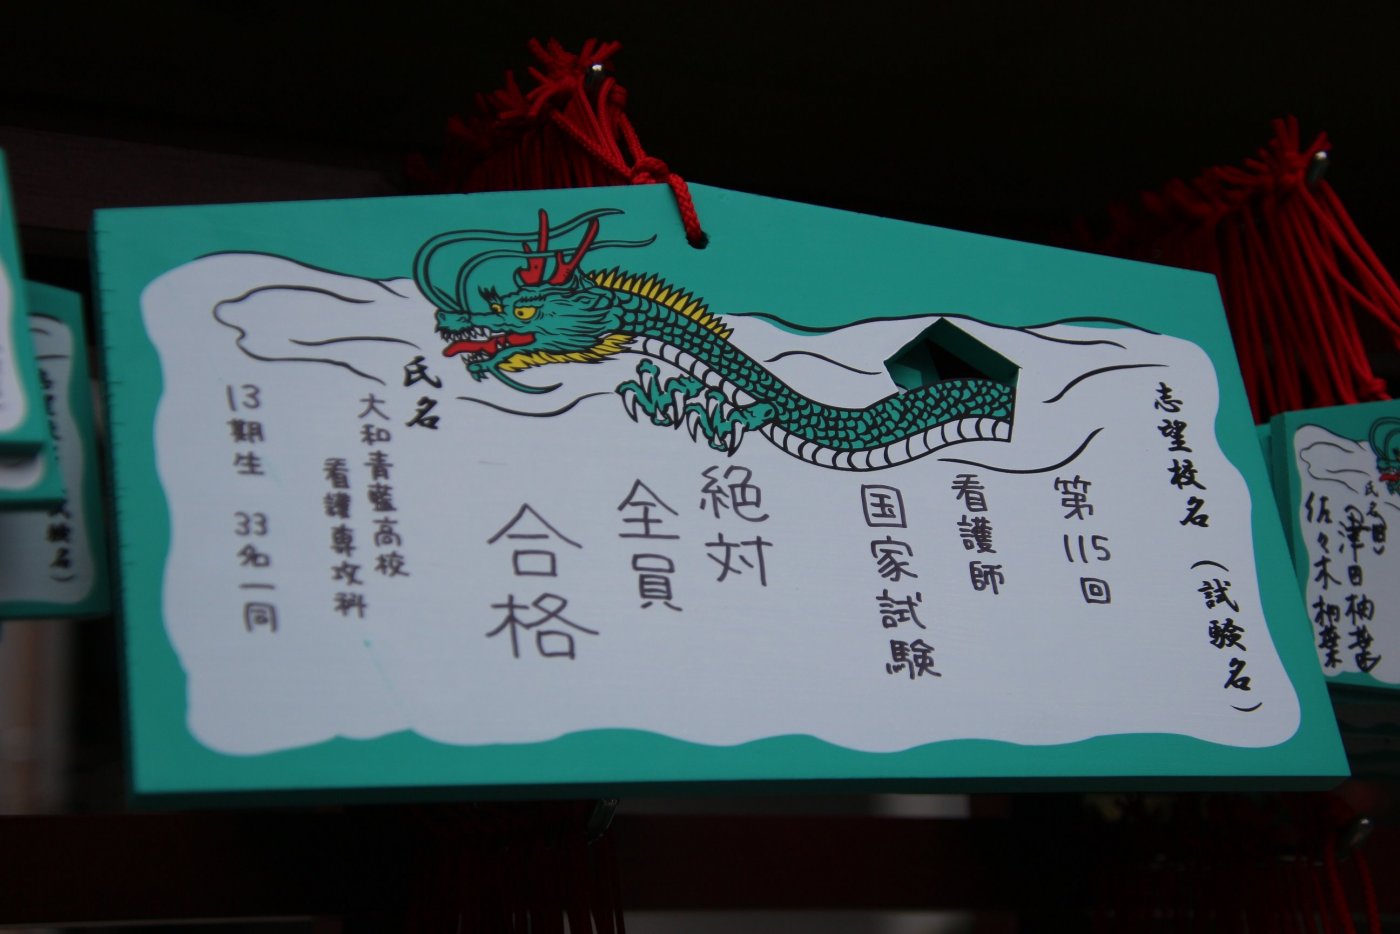 志望校名（試験名）
第115回
看護師
国家試験
絶対
全員
合格
氏名
大和青藍高校
看護専攻科
13期生 33名一同
氏名
佐々木柚葉
験名）